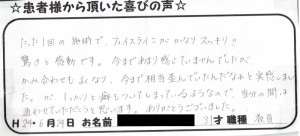 ☆患者様から頂いた喜びの声☆
たった1回の施術で、フェイスラインがかなりスッキリ!!
驚きと感動です。今まであまり感じていませんでしたが
かみ合わせもよくなり、今まで相当歪んでいたんだなぁと実感しま
した。が、しっかりと癖もついてしまっているようなので、当分の間は
通わせていただこうと思います。ありがとうございました。
H 24・6月24日 お名前 31才 職種 教員